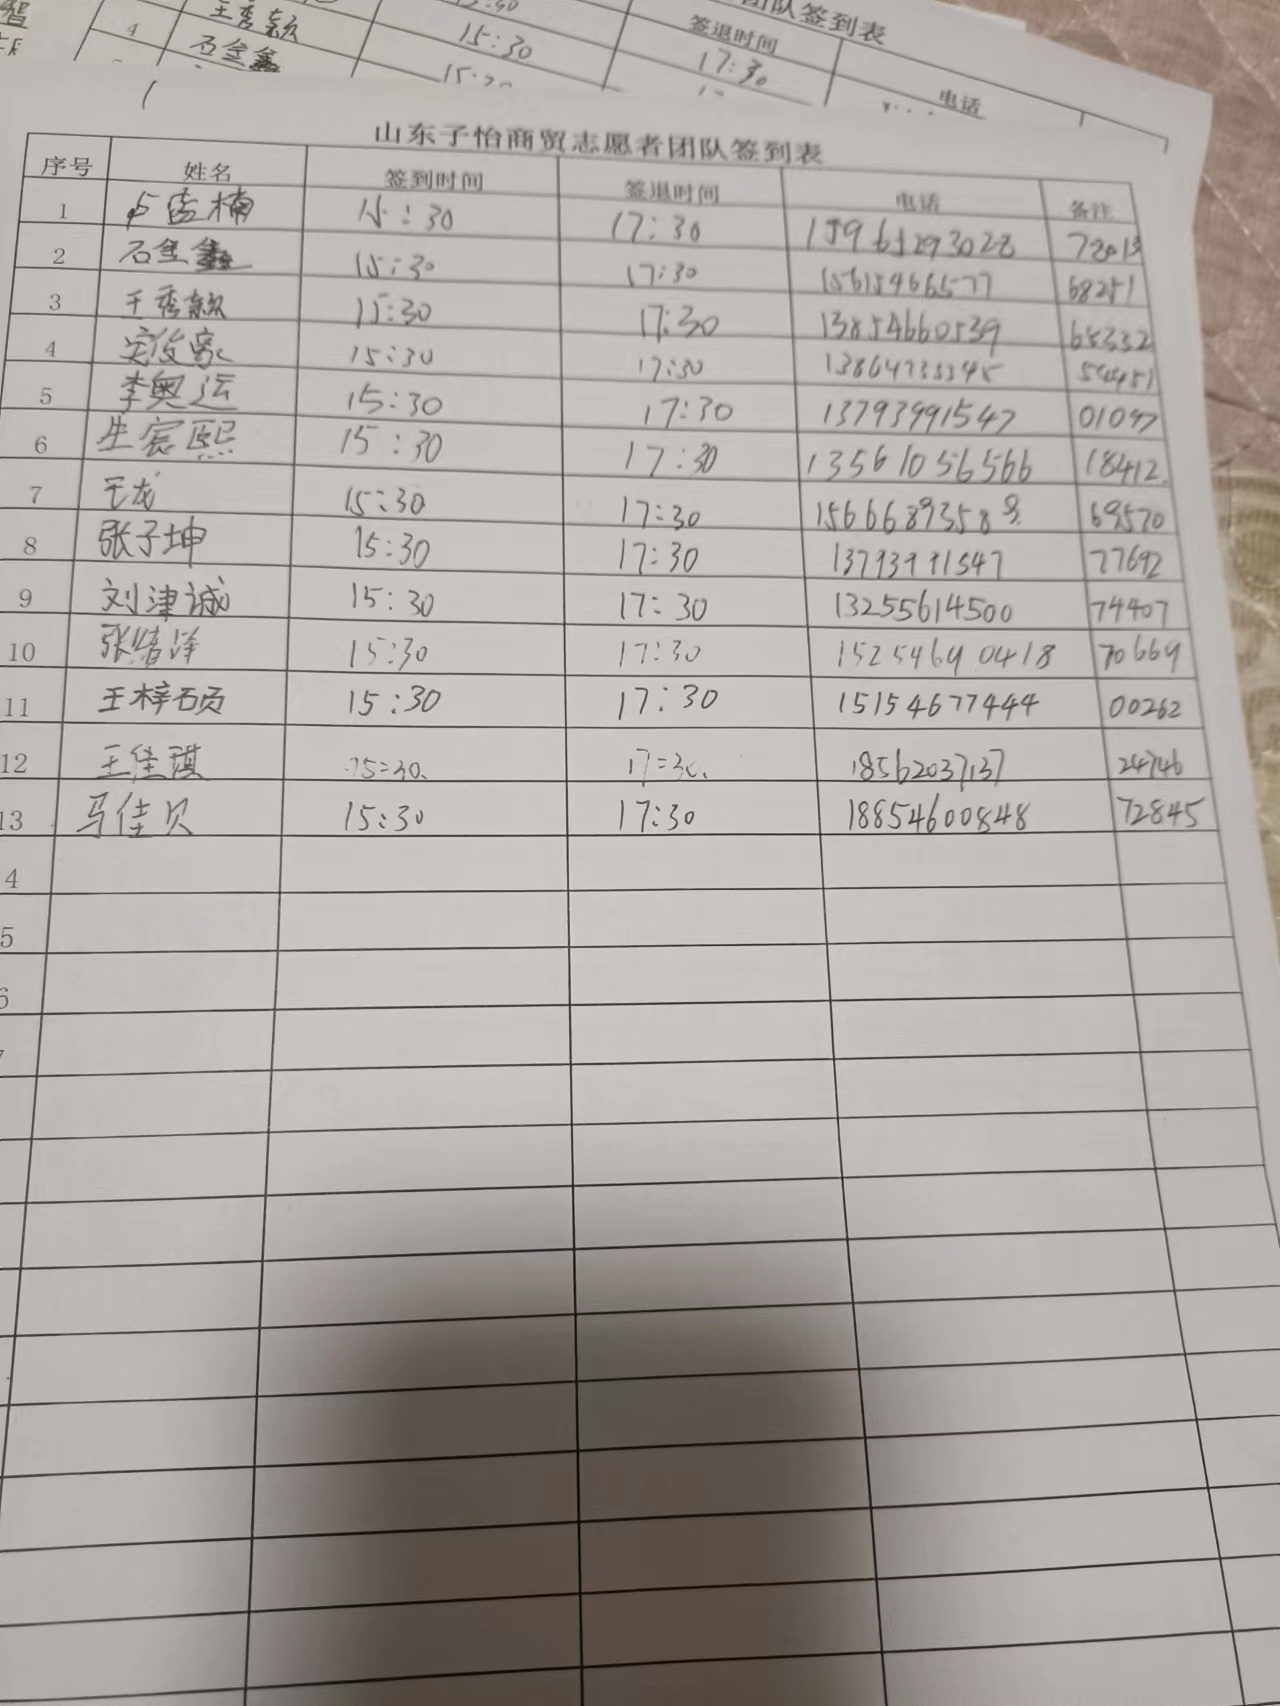 王秀颖 15:30
4 石金鑫 15:30 签退时间 17:30
团队签到表
电话
山东子怡商贸志愿者团队签到表
序号 姓名 签到时间 签退时间 电话 备注
1 15:30 17:30
2 石金鑫 15:30 17:30 15615466577 68251
3 王秀颖 15:30 17:30 13854660539 65332
4 15:30 17:30
5 李奥运 15:30 17:30 13793991547 01097
6 生宸熙 15:30 17:30 13561056566 18412
7 王龙 15:30 17:30 69570
8 张子坤 15:30 17:30 13793991547 77692
9 刘津诚 15:30 17:30 13255614500 74407
10 15:30 17:30 15254690418 70669
11 王梓硕 15:30 17:30 15154677444 00262
12 王佳琪 15:30 17:30 18562037137 24746
13 马佳贝 15:30 17:30 18854600848 72845
4
5
6